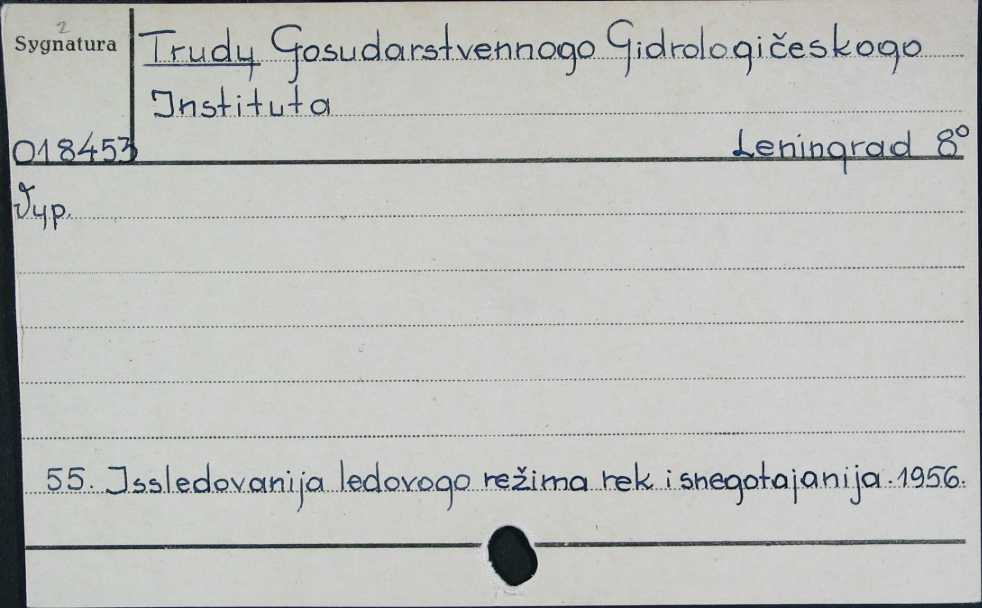 2
Sygnatura
Trudy Gosudarstvennogo Gidrologičeskogo
Instituta
018453
Leningrad 8°
Vyp.
55. Issledovanija ledovogo režima rek i snegotajanija. 1956.